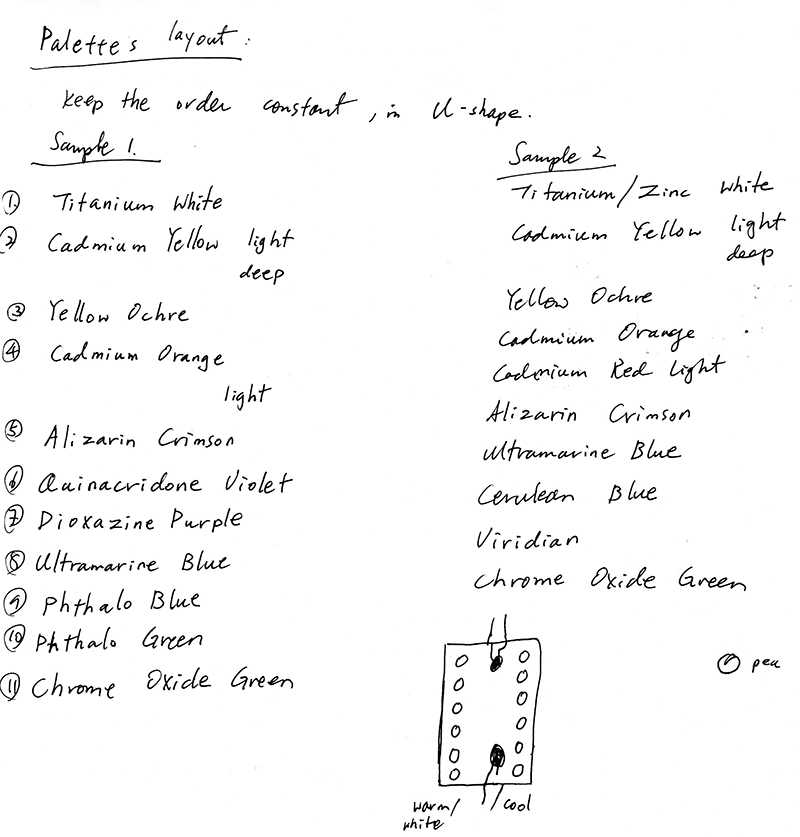 Palettes layout:
Keep the order constant, in U-shape.
Sample 1.
① Titanium White
② Cadmium Yellow light
deep
③ Yellow Ochre
④ Cadmium Orange
light
⑤ Alizarin Crimson
⑥ Quinacridone Violet
⑦ Dioxazine Purple
⑧ Ultramarine Blue
⑨ Phthalo Blue
⑩ Phthalo Green
⑪ Chrome Oxide Green
Sample 2
Titanium/Zinc White
Cadmium Yellow light
deep
Yellow Ochre
Cadmium Orange
Cadmium Red Light
Alizarin Crimson
Ultramarine Blue
Cerulean Blue
Viridian
Chrome Oxide Green
pea
warm/ /cool
white